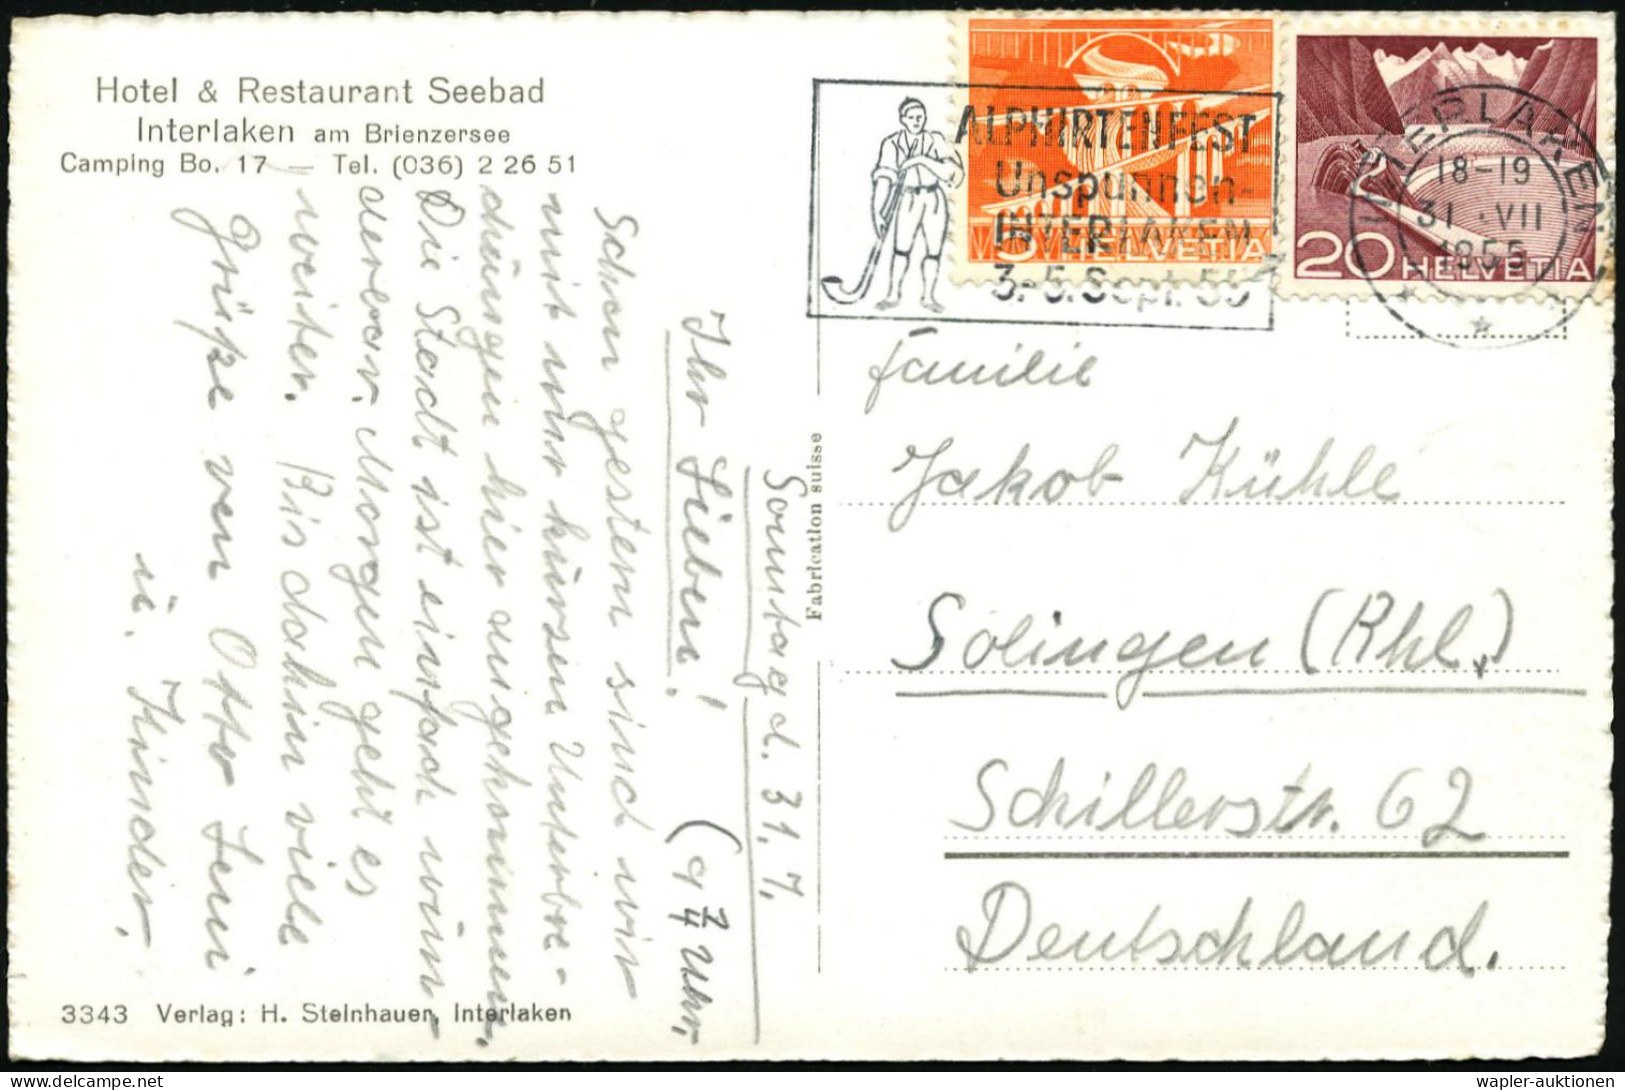 Hotel & Restaurant Seebad
Interlaken am Brienzersee
Camping Bo. 17 — Tel. (036) 2 26 51
Sonntag d. 31. 7.
(9 3/4 Uhr.
Ihr Lieben!
Schon gestern sind wir
mit nur kurzen Unterbre-
chungen hier angekommen.
Die Stadt ist einfach wun-
derbar. Morgen geht es
weiter. Bis dahin viele
Grüße von Otto Leni
u. Kinder.
3343 Verlag: H. Steinhauer, Interlaken
Fabrication suisse
ALPHIRTENFEST
Unspunnen-
INTERLAKEN
3.-5. Sept. 55
5 HELVETIA
20 HELVETIA
INTERLAKEN
18-19
31.VII
1955
Familie
Jakob Kühle
Solingen (Rhl.)
Schillerstr. 62
Deutschland.
wapler-auktionen